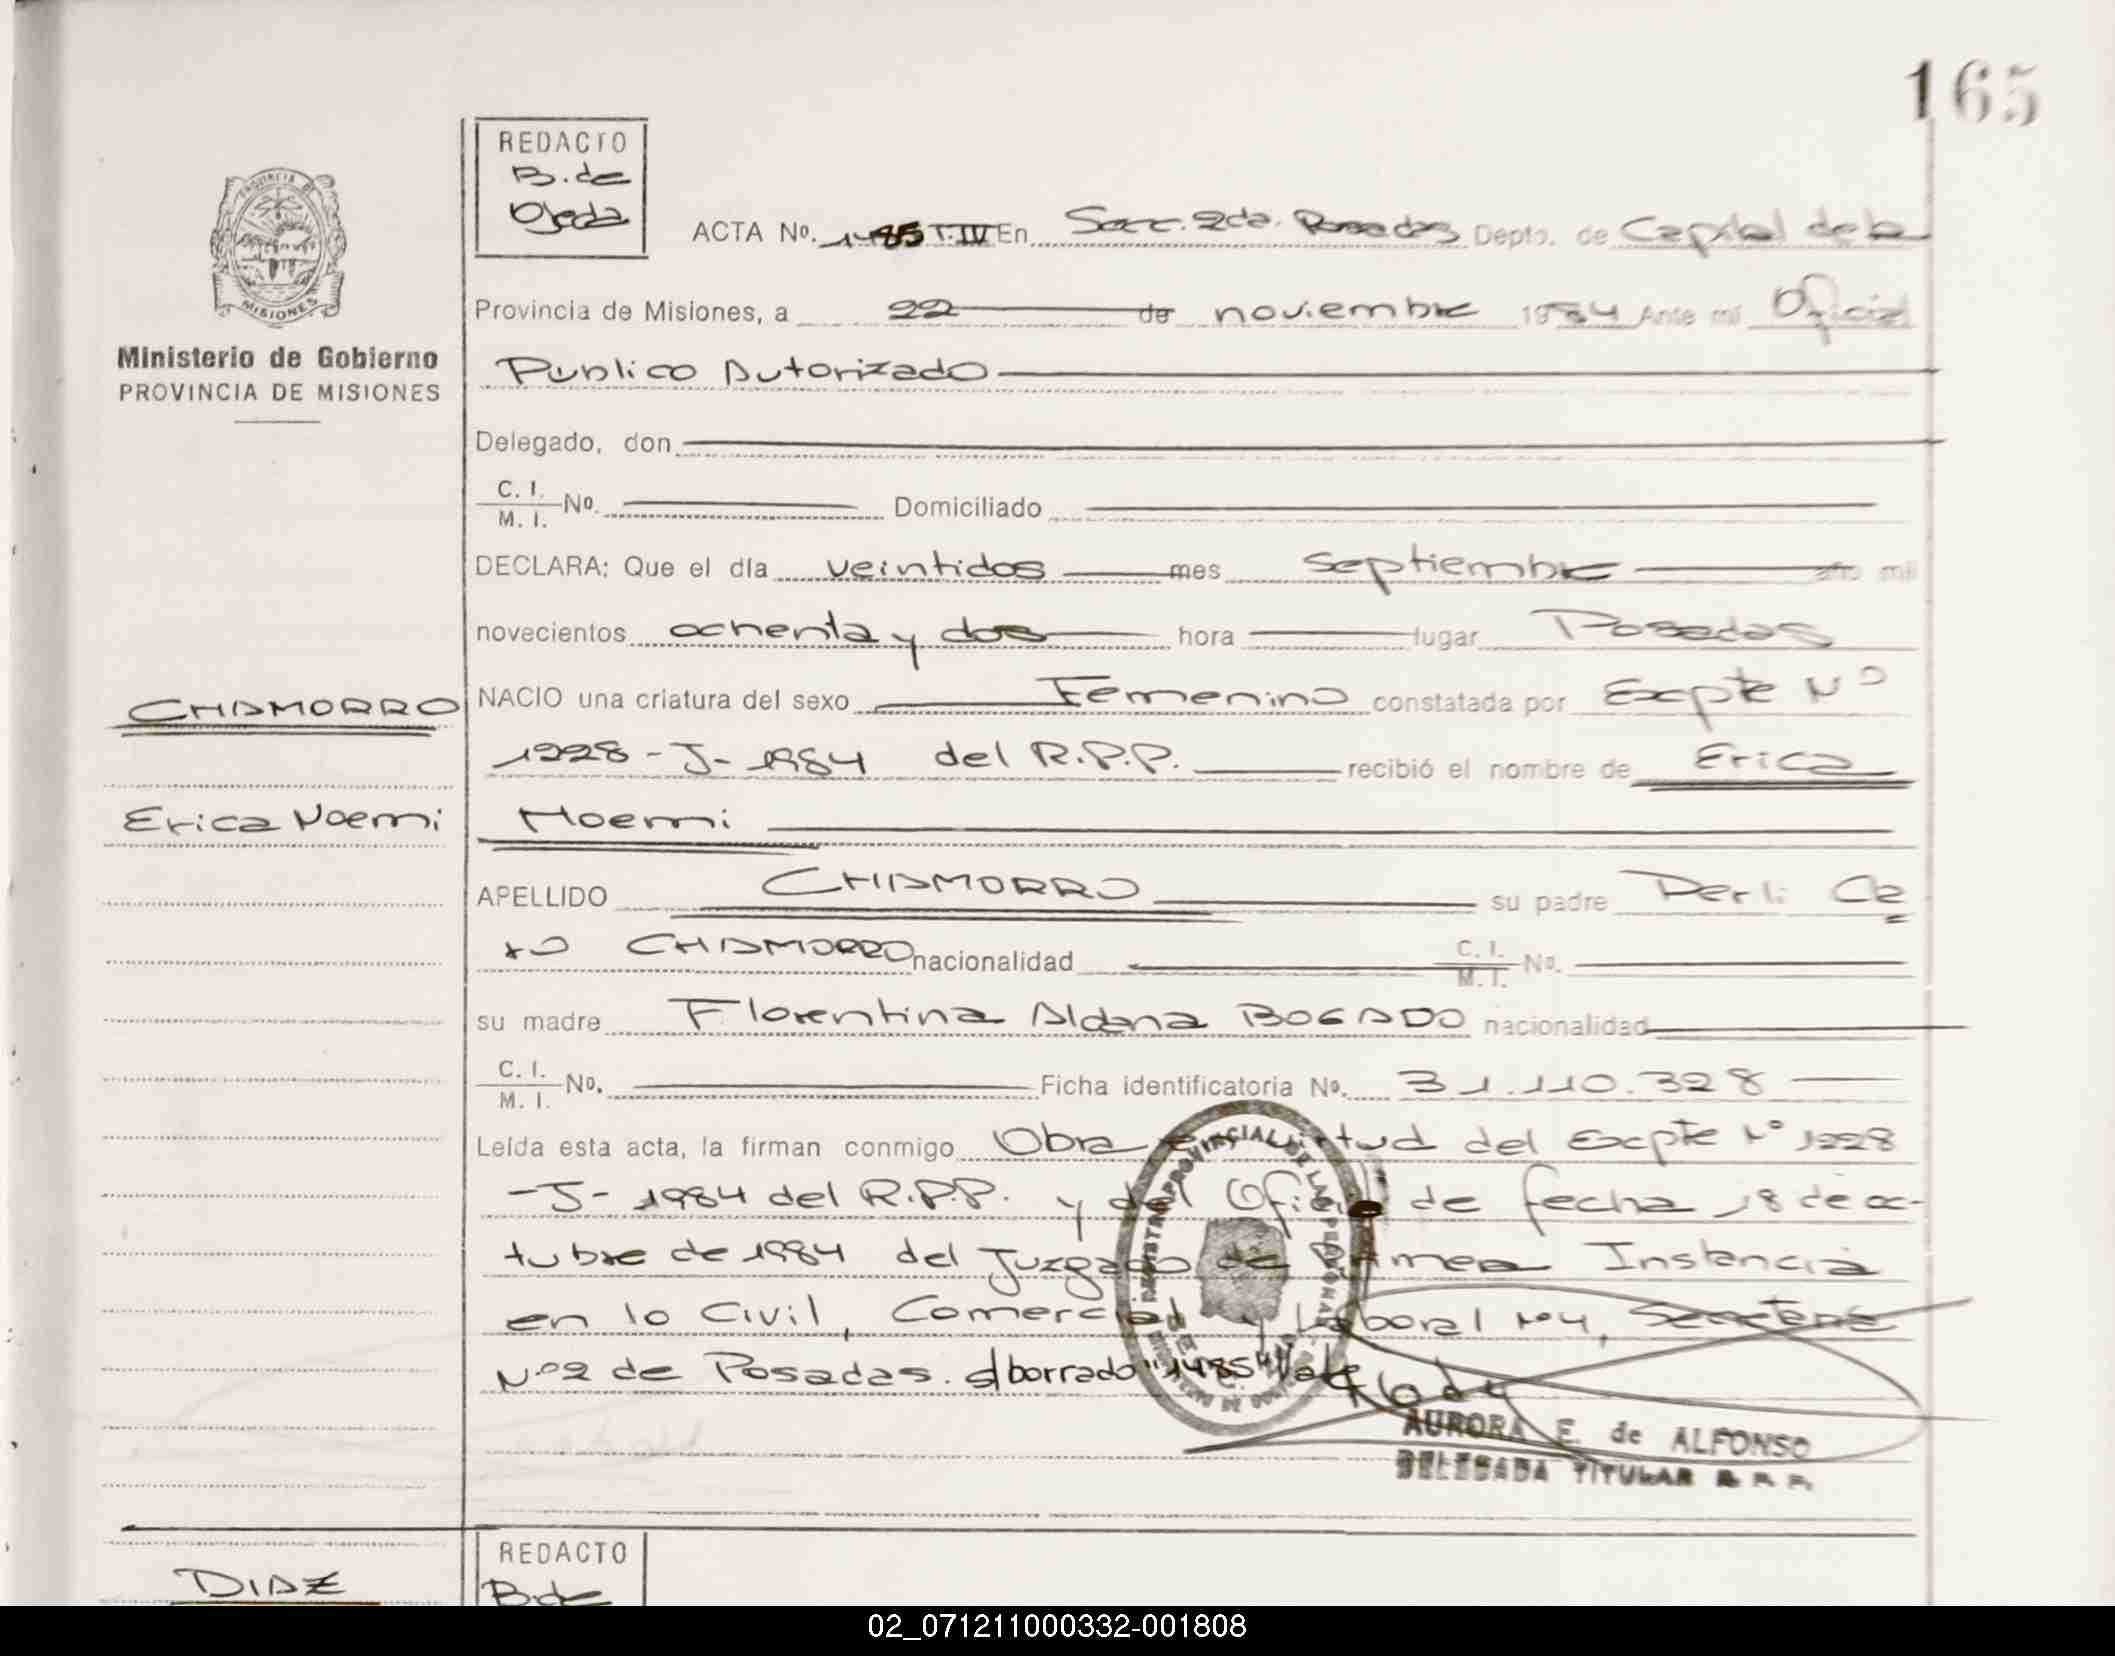 165
REDACTO
B. de
Ojeda
ACTA No. 1485 T.IV En Secc. 2da. Posadas Depto. de Capital de la
Provincia de Misiones, a 22 de noviembre 1984 Ante mí Oficial
Publico Autorizado
Ministerio de Gobierno
PROVINCIA DE MISIONES
Delegado, don
C. I. No. Domiciliado
M. I.
DECLARA: Que el día veintidos mes septiembre año mil
novecientos ochenta y dos hora lugar Posadas
CHAMORRO
NACIO una criatura del sexo Femenino constatada por Expte Nº
1228-J-1984 del R.P.P. recibió el nombre de Erica
Erica Noemi
Noemi
APELLIDO CHAMORRO su padre Derli Ce
to CHAMORRO nacionalidad C. I. No.
M. I.
su madre Florentina Aldana BOGADO nacionalidad
C. I. No. Ficha identificatoria No. 31.110.328
M. I.
Leída esta acta, la firman conmigo Obra en virtud del Expte Nº 1228
-J-1984 del R.P.P. y del Oficio de fecha 18 de oc-
tubre de 1984 del Juzgado de Primera Instancia
en lo Civil, Comercial y Laboral Nº4, Secretaria
Nº2 de Posadas. s/borrado "1485" Vale
AURORA E. de ALFONSO
DELEGADA TITULAR R. P. P.
REDACTO
DIAZ
B. de
02_071211000332-001808